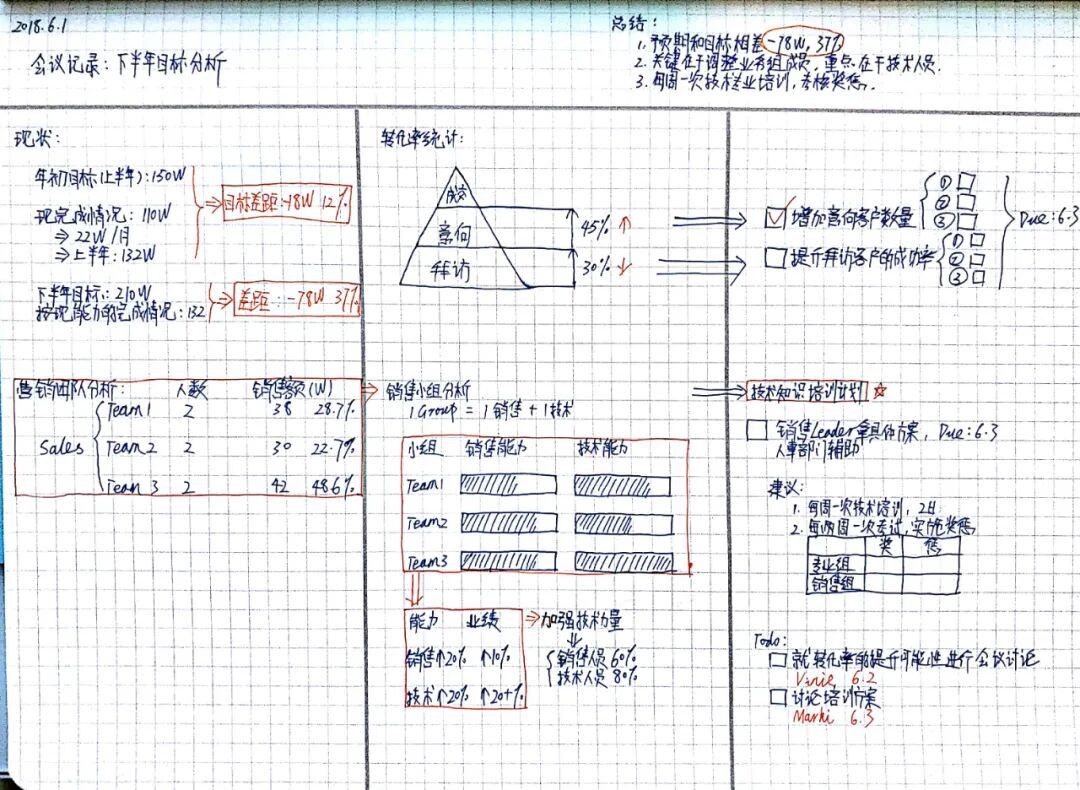 2018.6.1
会议记录：下半年目标分析
总结：
1. 预期和目标相差 -78W, 37%
2. 关键在于调整业务组成员，重点在于技术人员.
3. 每周一次技术专业培训，考核奖惩.
现状：
年初目标(上半年)：150W
现完成情况：110W
⇒ 22W/月
⇒ 上半年：132W
⇒ 目标差距：-18W 12%
下半年目标：210W
按现能力的完成情况：132
⇒ 差距：-78W 37%
营销团队分析： 人数 销售额(W)
Sales
Team1 2 38 28.7%
Team2 2 30 22.7%
Team 3 2 42 48.6%
转化率统计：
成交
意向
拜访
45% ↑
30% ↓
增加意向客户数量
① ② ③
提升拜访客户的成功率
① ② ③
Due：6.3
销售小组分析
1 Group = 1 销售 + 1 技术
小组 销售能力 技术能力
Team1
Team2
Team3
能力 业绩
销售↑20% ↑10%
技术↑20% ↑20+%
⇒ 加强技术力量
销售人员 60%
技术人员 80%
技术知识培训计划 ☆
销售Leader拿具体方案，Due：6.3
人事部门辅助
建议：
1. 每周一次技术培训，2H
2. 每两周一次考试，实施奖惩
奖 惩
专业组
销售组
Todo：
就转化率的提升可能性进行会议讨论
6.2
讨论培训方案
Marki 6.3